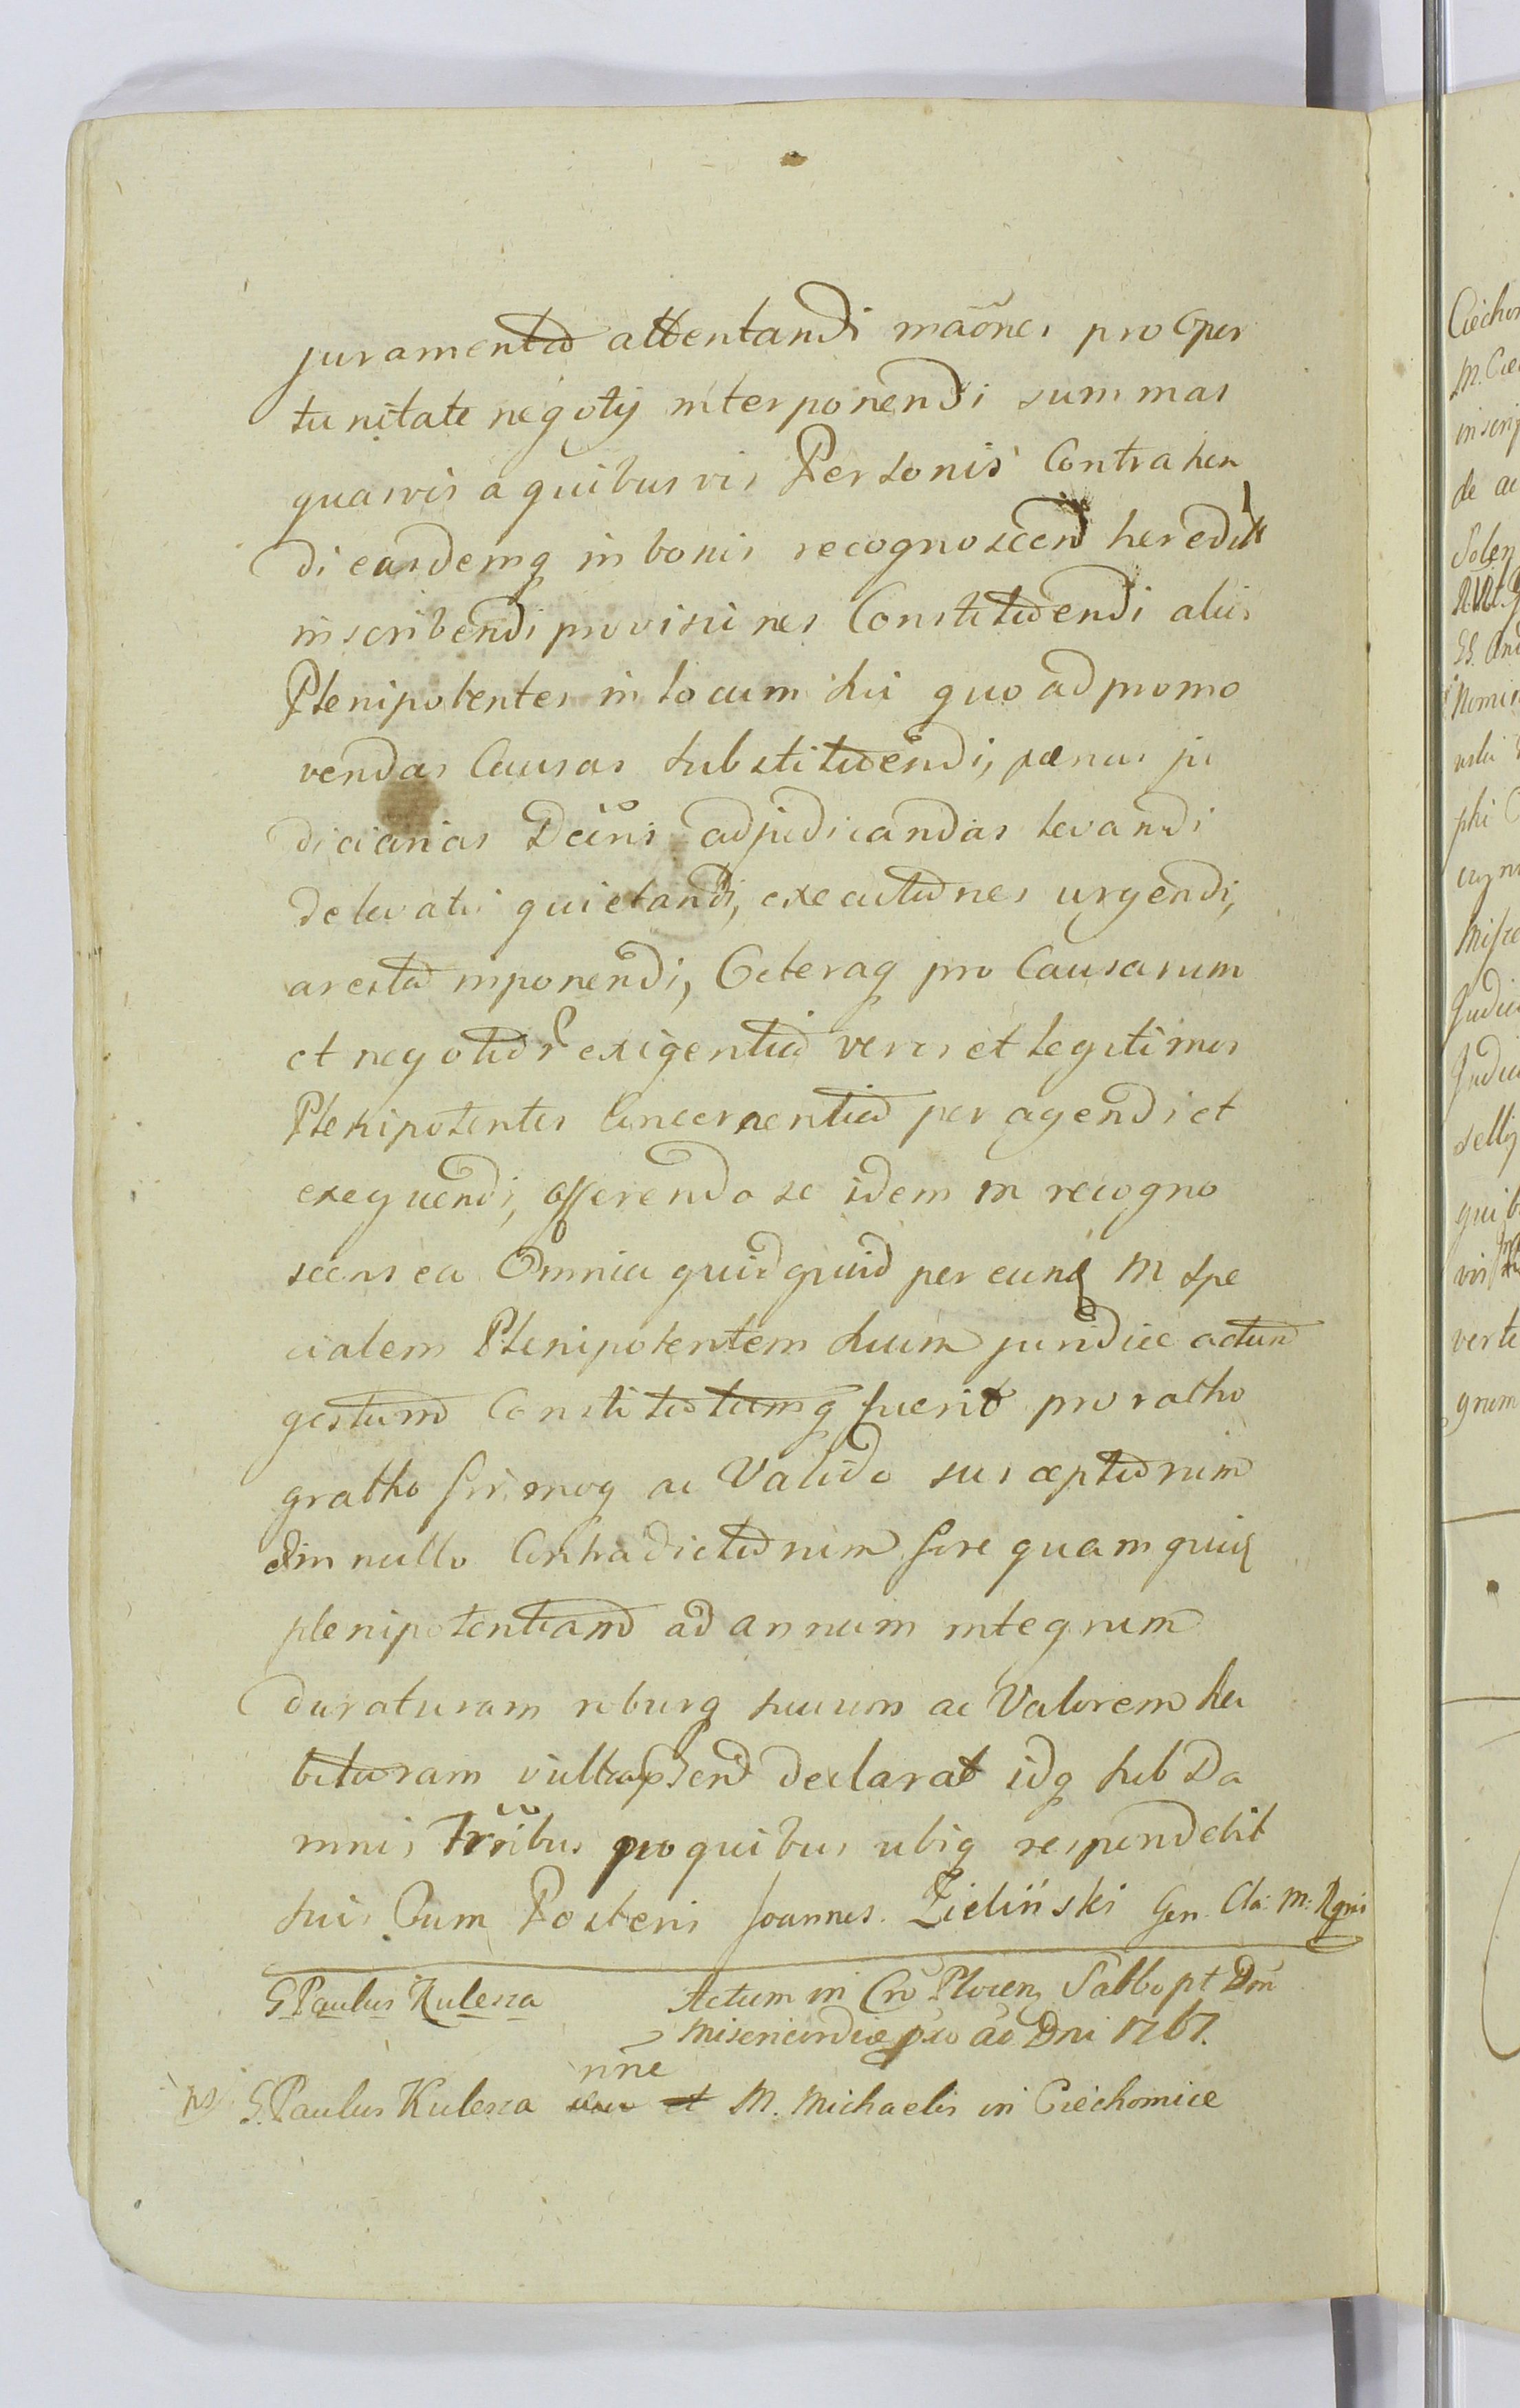 juramenta attentandi mãones pro oper
tunitate negotij interponendi summas
quasvis a quibusvis Personis Contrahen
di easdemq in bonis recognoscen heredit
inscribendi provisiones Constituendi alios
Plenipotentes in locum sui quo ad promo
vendas Causas substituendi, pænas ju
diciarias adjudicandas levandi
de levatis quietandi, executiones urgendi,
aresta inponendi, Ceteraq pro Causarum
et negotior exigentia veros et legitimos
Plenipotentes Concernentia peragendi et
exequendi, offerendo se idem m recogno
scens ea Omnia quidquid per eund M spe
cialem Plenipotentem suum juridice actum
gestum Constitutumq fuerit pro ratho
gratho firmoq ac Valido suscepturum
et in nullo Contradicturum fore quamquid
plenipotentiam ad annum integrum
duraturam roburq suum ac Valorem ha
bituram declarat idq sub Da
mnis Trribus pro quibus ubiq respondebit
suis Cum Posteris Joannes Zieliński Gen. Cla: M: Rgni
G Paulus Kulesza
Actum in Cro Plocen Sabbo pt Dom
Misericordiæ pro ao Dni 1767.
nne
ns G. Paulus Kulesza et M. Michaelis in Ciechomice
Ciechom
M. Cie
inscrip
de ac
Solen